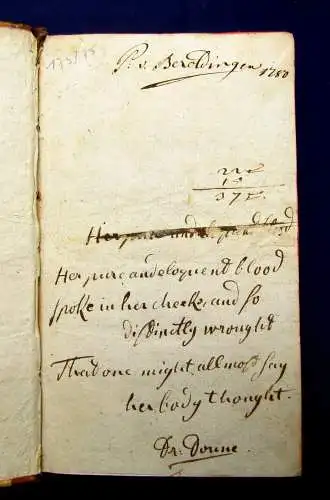 173/75
P. v. Beroldingen 1780
Her pure and eloquent blood
Her pure, and eloquent blood
spoke in her cheeks, and so
distinctly wrought
That one might allmost say
her body thought.
Dr: Donne